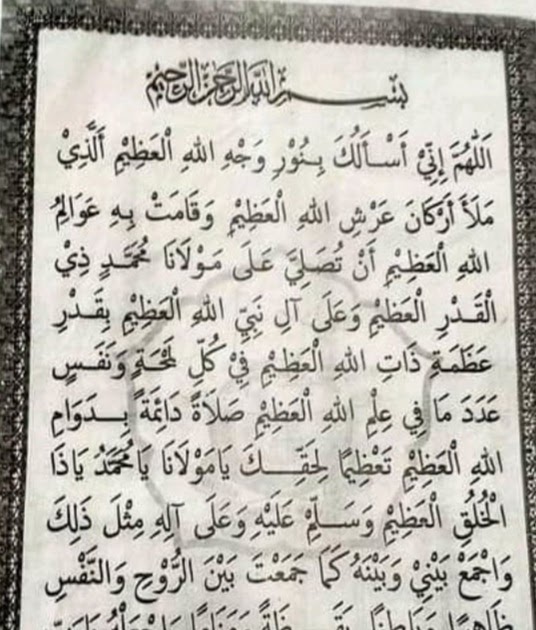 بسم الله الرحمن الرحيم
اَللّٰهُمَّ إِنِّيْ أَسْأَلُكَ بِنُوْرِ وَجْهِ اللهِ الْعَظِيْمِ اَلَّذِيْ
مَلَأَ أَرْكَانَ عَرْشِ اللهِ الْعَظِيْمِ وَقَامَتْ بِهِ عَوَالِمُ
اللهِ الْعَظِيْمِ أَنْ تُصَلِّيَ عَلَى مَوْلَانَا مُحَمَّدٍ ذِيْ
الْقَدْرِ الْعَظِيْمِ وَعَلَى آلِ نَبِيِّ اللهِ الْعَظِيْمِ بِقَدْرِ
عَظَمَةِ ذَاتِ اللهِ الْعَظِيْمِ فِيْ كُلِّ لَمْحَةٍ وَنَفَسٍ
عَدَدَ مَا فِي عِلْمِ اللهِ الْعَظِيْمِ صَلَاةً دَائِمَةً بِدَوَامِ
اللهِ الْعَظِيْمِ تَعْظِيْمًا لِحَقِّكَ يَامَوْلَانَا يَامُحَمَّدُ يَاذَا
الْخُلُقِ الْعَظِيْمِ وَسَلِّمْ عَلَيْهِ وَعَلَى آلِهِ مِثْلَ ذٰلِكَ
وَاجْمَعْ بَيْنِيْ وَبَيْنَهُ كَمَا جَمَعْتَ بَيْنَ الرُّوْحِ وَالنَّفْسِ
ظَاهِرًا وَبَاطِنًا يَقَظَةً وَمَنَامًا وَاجْعَلْهُ يَارَبِّ